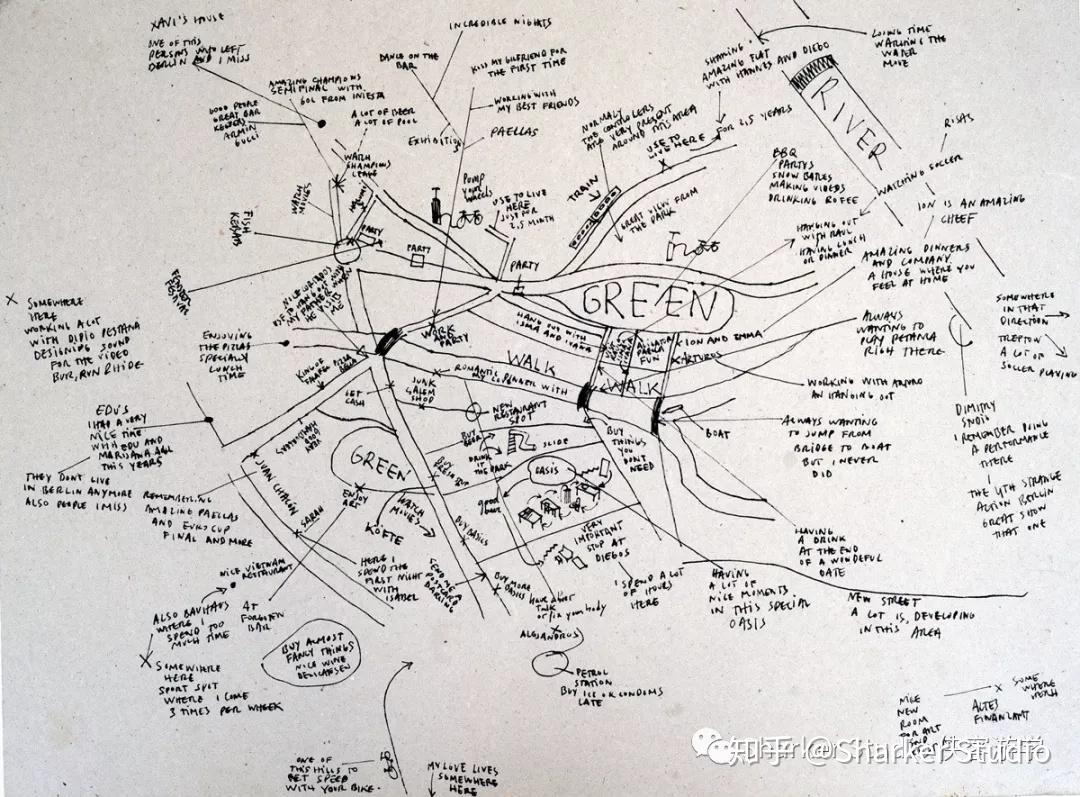 XAVI'S HOUSE
ONE OF THIS
PERSONS WHO LEFT
BERLIN AND I MISS
INCREDIBLE NIGHTS
DANCE ON THE
BAR
KISS MY GILFRIEND FOR
THE FIRST TIME
WORKING WITH
MY BEST FRIENDS
PAELLAS
EXHIBITIONS
AMAZING CHAMPIONS
SEMIFINAL WITH
GOL FROM INIESTA
A LOT OF BEER
A LOT OF POOL
GOOD PEOPLE
GREAT BAR
ARMIN
WATCH
CHAMPIONS
LEAGE
WATCH
MOVIES
FISH
KEBABS
PUMP
YOUR
WHEELS
USE TO LIVE
HERE
JUST FOR
2,5 MONTH
PARTY
PARTY
PARTY
NORMALY
THE CONTROLERS
ARE VERY PRESENT
AROUND THIS AREA
SHARING
AMAZING FLAT
WITH HANNES AND DIEGO
USE TO
LIVE HERE
FOR 2,5 YEARS
TRAIN
GREAT VIEW FROM
THE DARK
LOSING TIME
WATCHING THE
WATER
MOVE
RIVER
RISAS
WATCHING SOCCER
BBQ
PARTYS
SNOW BATLES
MAKING VIDEOS
DRINKING KOFFEE
ION IS AN AMAZING
CHEEF
HANGING OUT
WITH RAUL
HAVING LUNCH
OR DINNER
AMAZING DINNERS
AND COMPANY.
A HOUSE WHERE YOU
FEEL AT HOME
SOMEWHERE
IN THAT
DIRECTION
TREPTOW
A LOT OF
SOCCER PLAYING
ALWAYS
WANTING TO
RIGHT THERE
GREEN
HANG OUT WITH
ISMA AND
ION AND IMMA
WORK
AND
PARTY
WALK
WALK
ROMANTIC
WITH
X SOMEWHERE
HERE
WORKING A LOT
WITH
DESIGNING SOUND
FOR THE VIDEO
BUR, RUN RHIDE
ENJOYING
THE PIZZAS
SPECIALLY
LUNCH
TIME
GET
CASH
JUNK
SHOP
NEW
RESTAURANT
SPOT
WORKING WITH ARTURO
AN HANGING OUT
ALWAYS WANTING
TO JUMP FROM
BRIDGE TO BOAT
BUT I NEVER
DID
BOAT
BUY
THINGS
YOU
DONT
NEED
BUY
BEER
DRINK
IT IN
THE PARK
SLIDE
OASIS
GREEN
ENJOY
ART
WATCH
MOVIES
KÖFTE
BUY BASICS
EDU'S
I HAD A VERY
NICE TIME
WITH EDU AND
THIS YEARS
THEY DONT LIVE
IN BERLIN ANYMORE
ALSO PEOPLE I MISS
REMEMBERING
AMAZING PAELLAS
AND EURO CUP
FINAL AND MORE
JUAN CHACON
SARAH
HERE I
SPEND THE
FIRST NIGHT
WITH
ISABEL
SEND ME A
POSTCARD
DARLING
BUY MORE
BASICS
VERY
IMPORTANT
STOP AT
DIEGOS
I SPEND A LOT
OF HOURS
HERE
HAVING
A LOT OF
NICE MOMENTS
IN THIS SPECIAL
OASIS
HAVING
A DRINK
AT THE END
OF A WONDEFUL
DATE
NEW STREET
A LOT IS, DEVELOPING
IN THIS AREA
DIMITRY
I REMEMBER DOING
A PERFORMANCE
THERE
THE 4TH STRANGE
ACTION BERLIN
GREAT SHOW
THAT ONE
NICE VIETNAM
RESTAURANT
ALSO BAUHAUS
WHERE I
SPEND TOO
MUCH TIME
AT
FORGOTEN
BAR
BUY ALMOST
FANCY THINGS
NICE WINE
X SOMEWHERE
HERE
SPORT SPOT
WHERE I COME
3 TIMES PER WEEK
PETROL
STATION
BUY ICE OR CONDOMS
LATE
ONE OF
THIS HILLS TO
GET SPEED
WITH YOUR BIKE.
MY LOVE LIVES
SOMEWHERE
HERE
NICE
NEW
ROOM
FOR ART
X SOME
WHERE
ALTES
FINANZAMT
知乎 @Sharker Studio